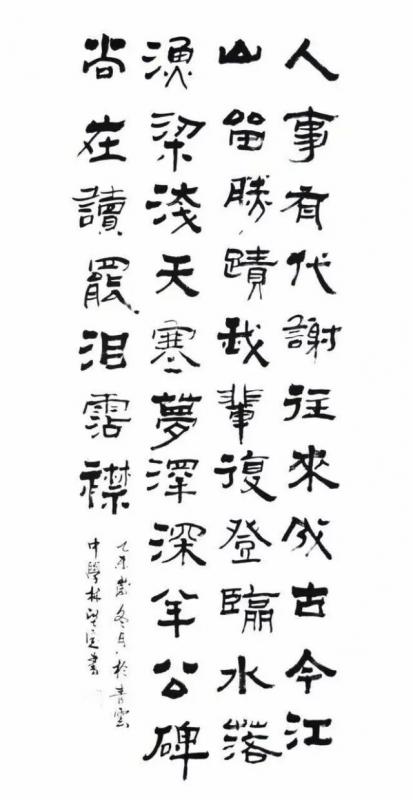 人事有代謝往來成古今江
山留勝蹟我輩復登臨水落
漁梁淺天寒夢澤深羊公碑
尚在讀罷泪霑襟
乙未歲冬月於青雲
中學林書